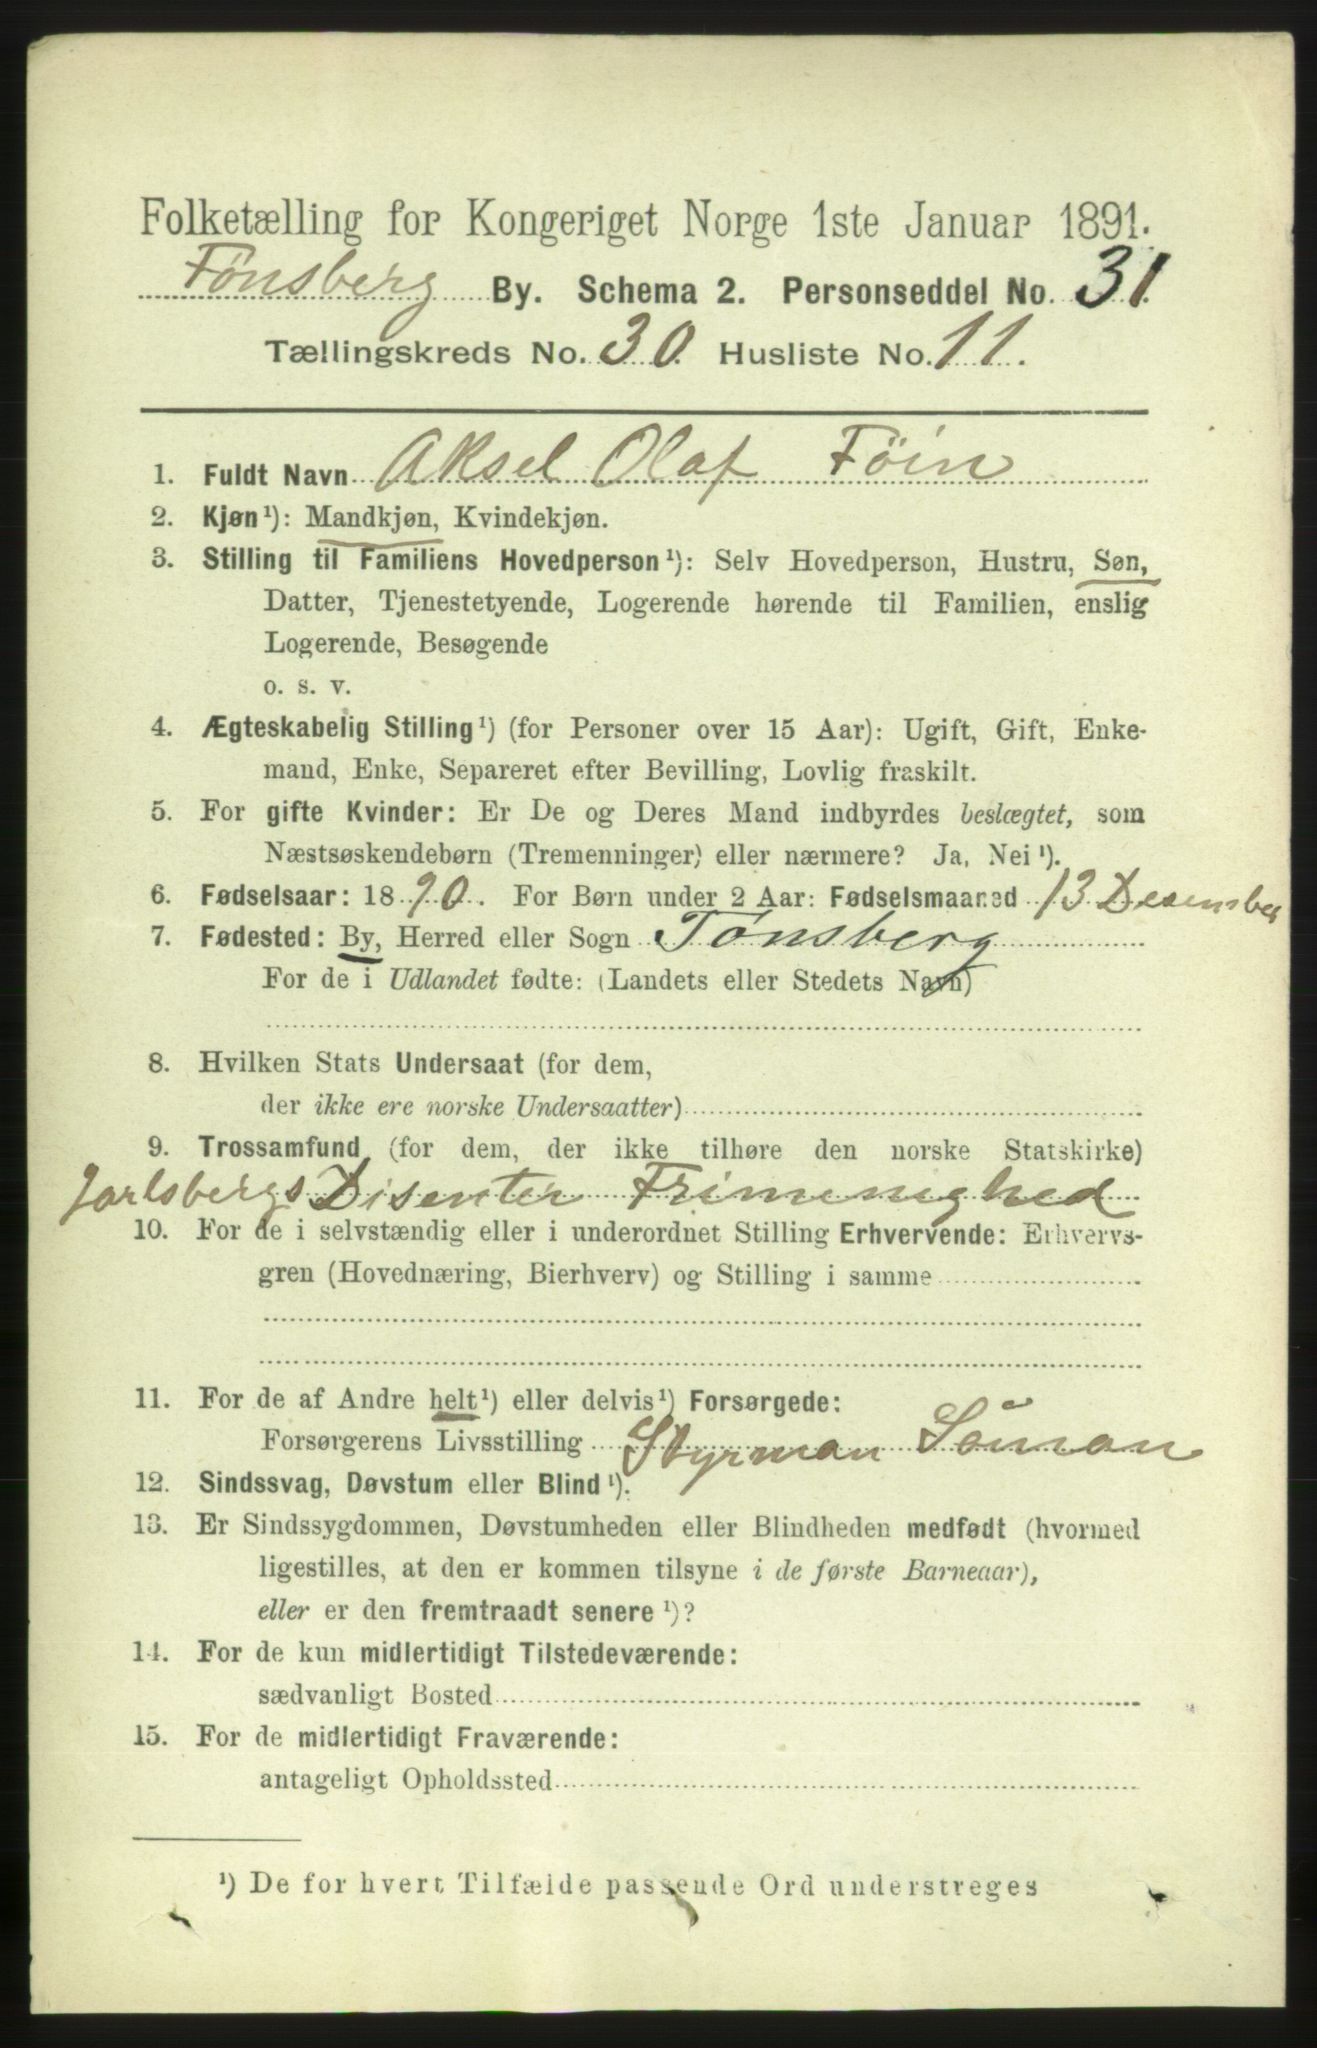 Folketælling for Kongeriget Norge 1ste Januar 1891.
Tønsberg By. Schema 2. Personseddel No. 31
Tællingskreds No. 30. Husliste No. 11.
1. Fuldt Navn Aksel Olaf Föin
2. Kjøn¹): Mandkjøn, Kvindekjøn.
3. Stilling til Familiens Hovedperson¹): Selv Hovedperson, Hustru, Søn,
Datter, Tjenestetyende, Logerende hørende til Familien, enslig
Logerende, Besøgende
o. s. v.
4. Ægteskabelig Stilling¹) (for Personer over 15 Aar): Ugift, Gift, Enke-
mand, Enke, Separeret efter Bevilling, Lovlig fraskilt.
5. For gifte Kvinder: Er De og Deres Mand indbyrdes beslægtet, som
Næstsøskendebørn (Tremenninger) eller nærmere? Ja, Nei¹).
6. Fødselsaar: 1890. For Børn under 2 Aar: Fødselsmaaned 13 Desember
7. Fødested: By, Herred eller Sogn Tønsberg
For de i Udlandet fødte: (Landets eller Stedets Navn)
8. Hvilken Stats Undersaat (for dem,
der ikke ere norske Undersaatter)
9. Trossamfund (for dem, der ikke tilhøre den norske Statskirke)
Jarlsbergs Disenter Frimenighed
10. For de i selvstændig eller i underordnet Stilling Erhvervende: Erhvervs-
gren (Hovednæring, Bierhverv) og Stilling i samme
11. For de af Andre helt¹) eller delvis¹) Forsørgede:
Forsørgerens Livsstilling Styrman Söman
12. Sindssvag, Døvstum eller Blind¹).
13. Er Sindssygdommen, Døvstumheden eller Blindheden medfødt (hvormed
ligestilles, at den er kommen tilsyne i de første Barneaar),
eller er den fremtraadt senere¹)?
14. For de kun midlertidigt Tilstedeværende:
sædvanligt Bosted
15. For de midlertidigt Fraværende:
antageligt Opholdssted
¹) De for hvert Tilfælde passende Ord understreges